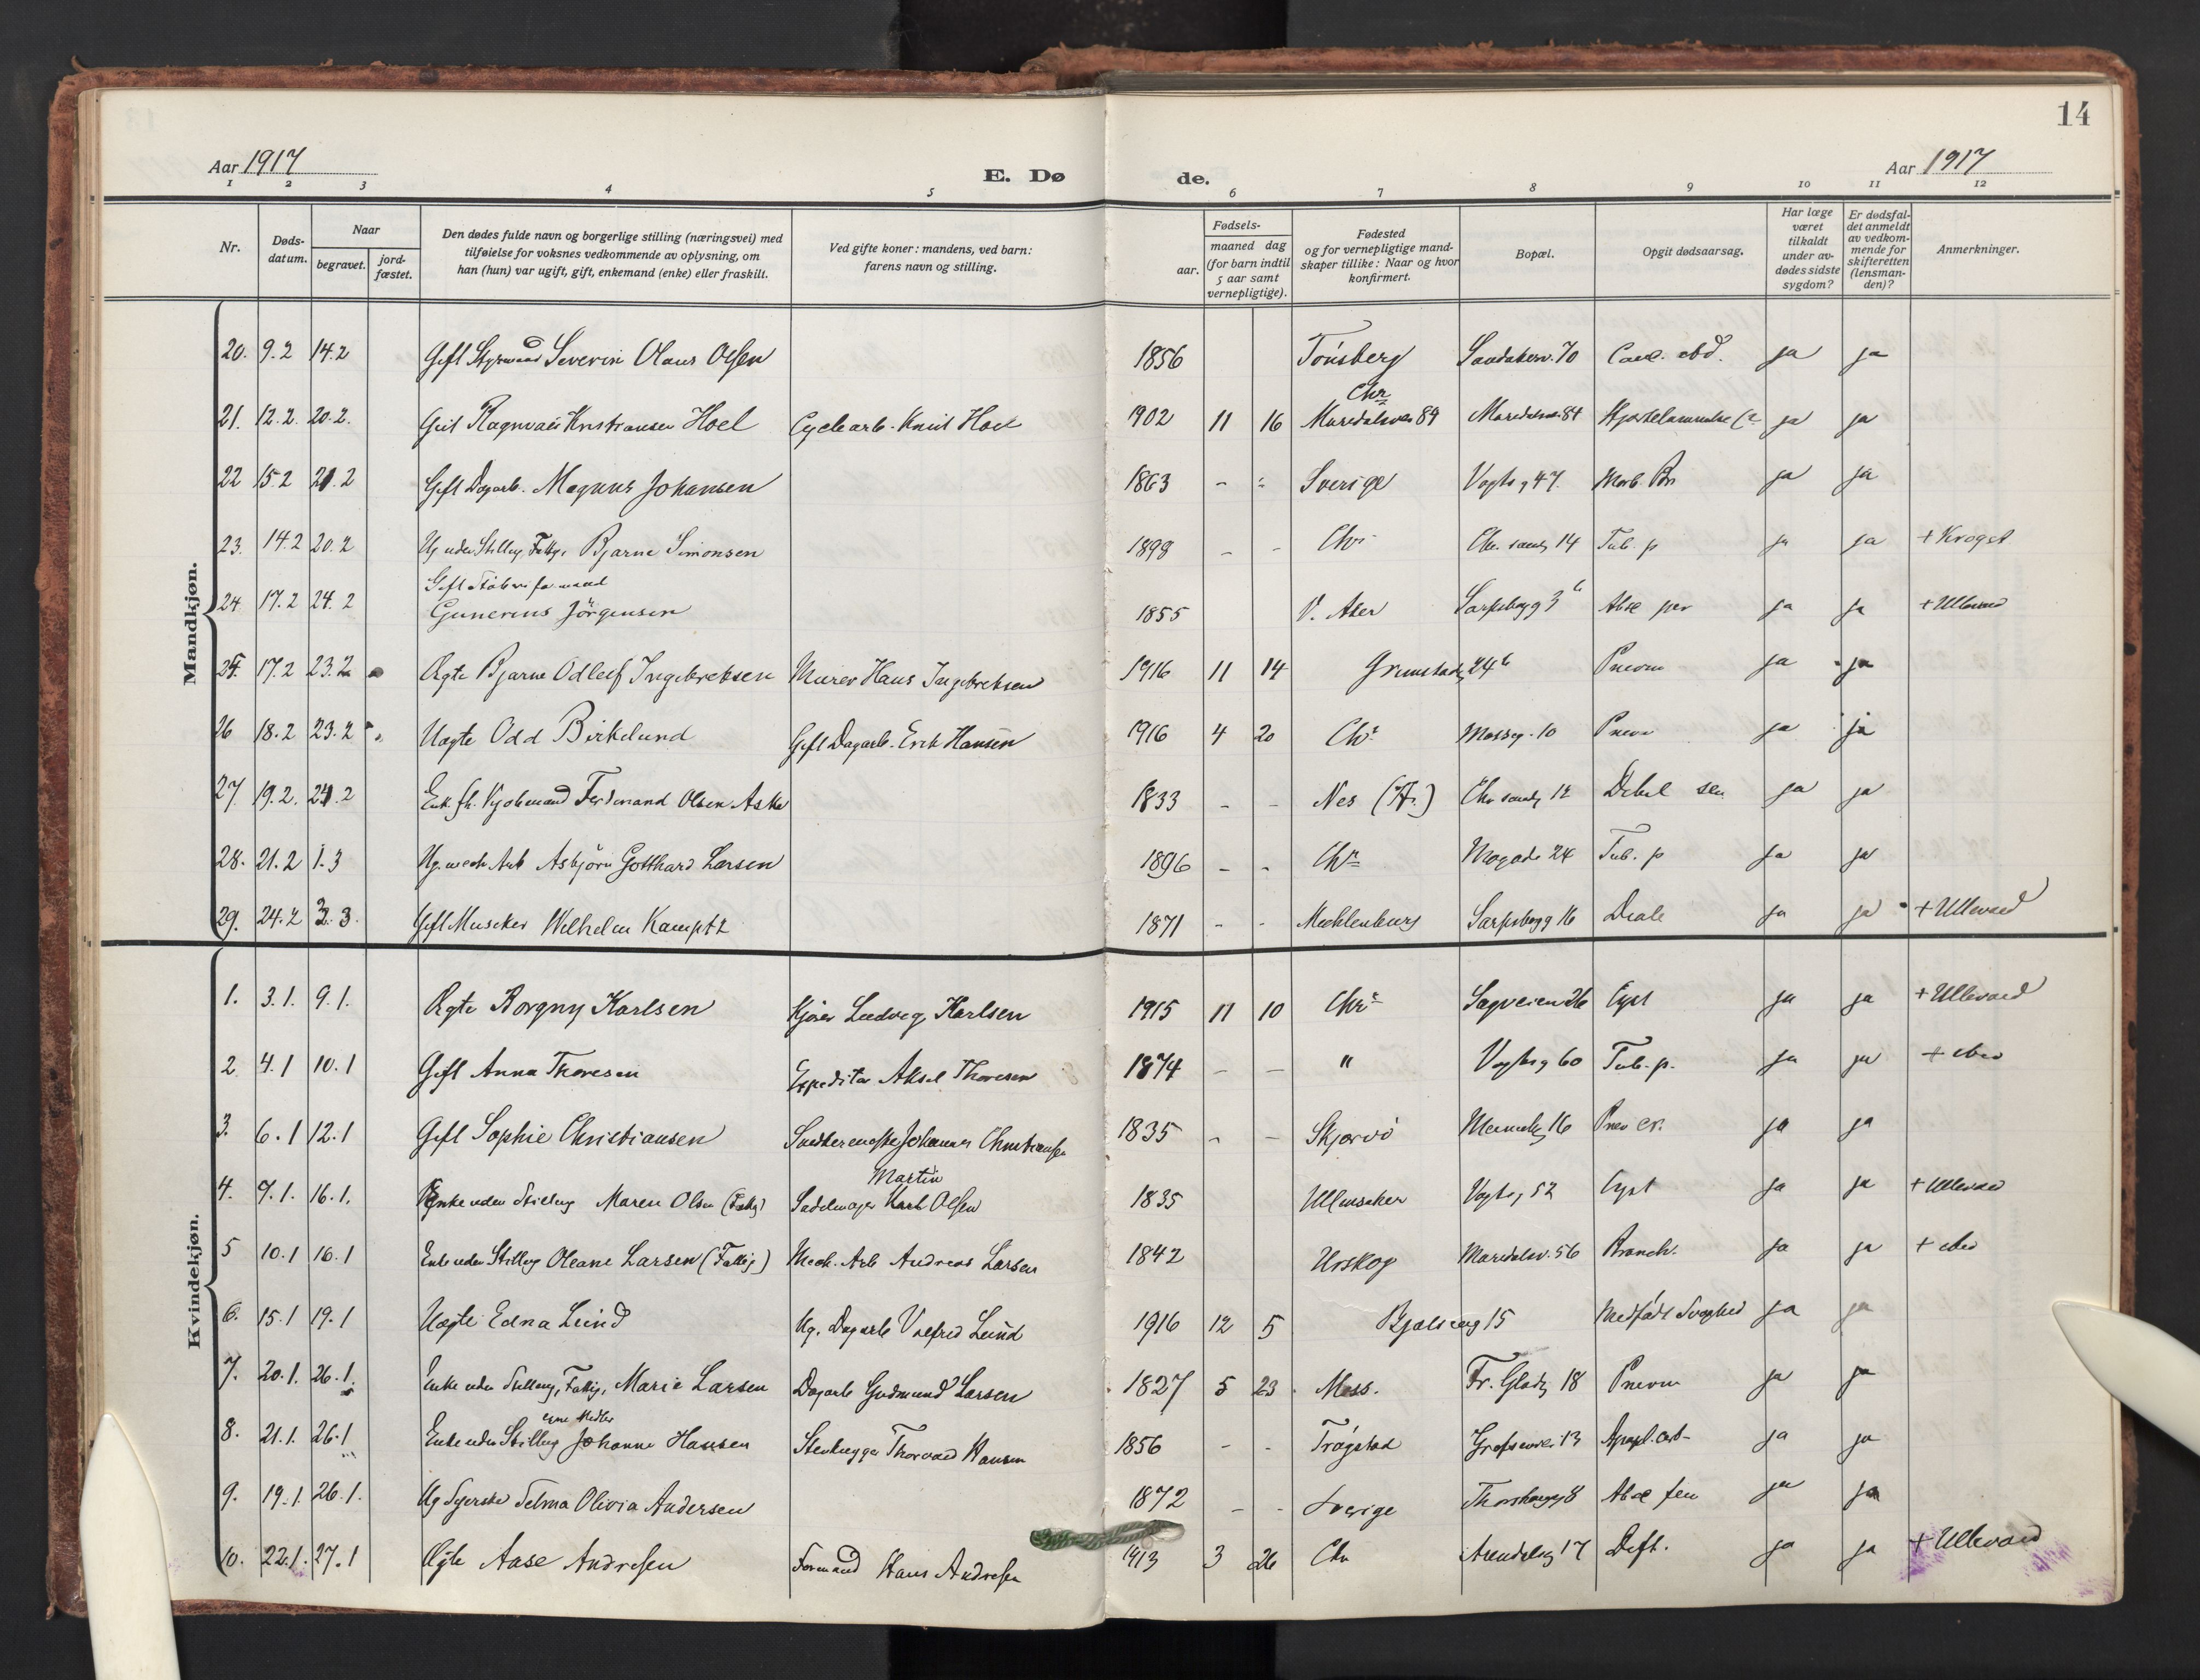 14
Aar 1917
E. Dø de.
Aar 1917
1 2 3 4 5 6 7 8 9 10 11 12
Nr.
Døds-
datum.
Naar
begravet.
jord-
fæstet.
Den dødes fulde navn og borgerlige stilling (næringsvei) med
tilføielse for voksnes vedkommende av oplysning, om
han (hun) var ugift, gift, enkemand (enke) eller fraskilt.
Ved gifte koner: mandens, ved barn:
farens navn og stilling.
Fødsels-
aar.
maaned dag
(for barn indtil
5 aar samt
vernepligtige).
Fødested
og for vernepligtige mand-
skaper tillike: Naar og hvor
konfirmert.
Bopæl.
Opgit dødsaarsag.
Har læge
været
tilkaldt
under av-
dødes sidste
sygdom?
Er dødsfal-
det anmeldt
av vedkom-
mende for
skifteretten
(lensman-
den)?
Anmerkninger.
Mandkjøn.
20. 9.2 14.2 Gift Styrmand Severin Olaus Olsen 1856 Tønsberg 70 ja ja
Chr
21. 12.2. 20.2. Hoel 1902 11 16 Maridalsvei 84 Maridalsv. 84 ja ja
22 15.2 21.2 Gift Dagarb. Magnus Johansen 1863 - - Sverige Vogts g 47. ja ja
23. 14.2 20.2 Ug uden Stilling, Fattig, Bjarne Simonsen 1898 - - Chr 14 Tub. p ja ja + Krogst
Gift
24 17.2 24.2 Gunerius Jörgensen 1855 V. Aker Sarpsborgg 3 b ja ja + Ullevaal
25. 17.2 23.2 Ægte Bjarne Odleif Ingebretsen Murer Hans Ingebretsen 1916 11 14 Grimstadg 24 b Pneum ja ja
26 18.2 23.2 Uægte Odd Birkelund Gift Dagarb. Erik Hansen 1916 4 20 Chr Mosseg. 10 Pneum ja ja
27 19.2. 24.2 Ferdinand Olsen Aske 1833 - - Nes 12 Debil sen ja ja
28. 21.2 1.3 Ug. mech Arb Asbjörn Gotthard Larsen 1896 - - Chr 24 Tub. p ja ja
29. 24.2 3. Gift Musiker Wilhelm Kamptz 1871 - - Mecklenburg Sarpsborgg 16 ja ja + Ullevaal
Kvindekjøn.
1. 3.1. 9.1. Ægte Borgny Karlsen Kjører Ludvig Karlsen 1915 11 10 Chr Sagveien 26 ja ja + Ullevaal
2. 4.1 10.1 Gift Anna Thoresen Expeditør Aksel Thoresen 1874 - - " Vogtsg 60 Tub. p. ja ja
3. 6.1 12.1 Gift Sophie Christiansen Johannes Christiansen 1835 - - Skjervö 16 ja ja
Martin
4. 7.1. 16.1. Enke uden Stilling Maren Olsen (Fattig) Sadelmager Karl Olsen 1835 Ullensaker Vogtsg 52 ja ja + Ullevaal
5 10.1 16.1 Enke uden Stilling Oleane Larsen (Fattig) Mech. Arb Andreas Larsen 1842 Urskog Maridalsv. 56 Bronch. ja ja
6. 15.1 19.1 Uægte Edna Lund Ug. Dagarb Valfred Lund 1916 12 5 15 Medfødt Svaghed ja ja
7. 20.1. 26.1. Enke uden Stilling, Fattig, Marie Larsen Dagarb Gudmund Larsen 1827 5 23 Moss. Fr. Gladsg 18 Pneum ja ja
egne Midler
8. 21.1. 26.1 Enke uden Stilling Johanne Hansen Stenhugger Thorvald Hansen 1856 - - Trøgstad 13 Apopl. ja ja
9. 19.1. 26.1. Ug Syerske Selma Olivia Andersen 1872 - - Sverige 8 ja ja
10. 22.1. 27.1 Ægte Aase Andresen Formand Hans Andresen 1913 3 26 Chr Arendalsg 17 Dift. ja ja + Ullevaal